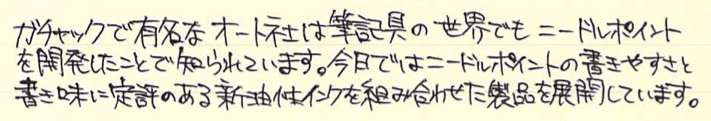 ガチャックで有名なオート社は筆記具の世界でもニードルポイント
を開発したことで知られています。今日ではニードルポイントの書きやすさと
書き味に定評のある新油性インクを組み合わせた製品を展開しています。